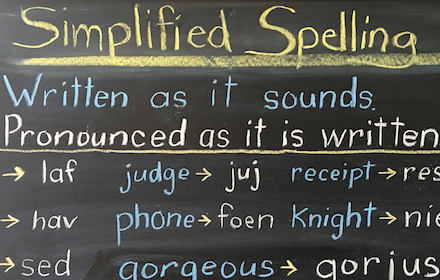 Simplified Spelling
Written as it sounds.
Pronounced as it is written
→ laf judge → juj receipt → res
→ hav phone → foen Knight → nie
→ sed gorgeous → gorjus